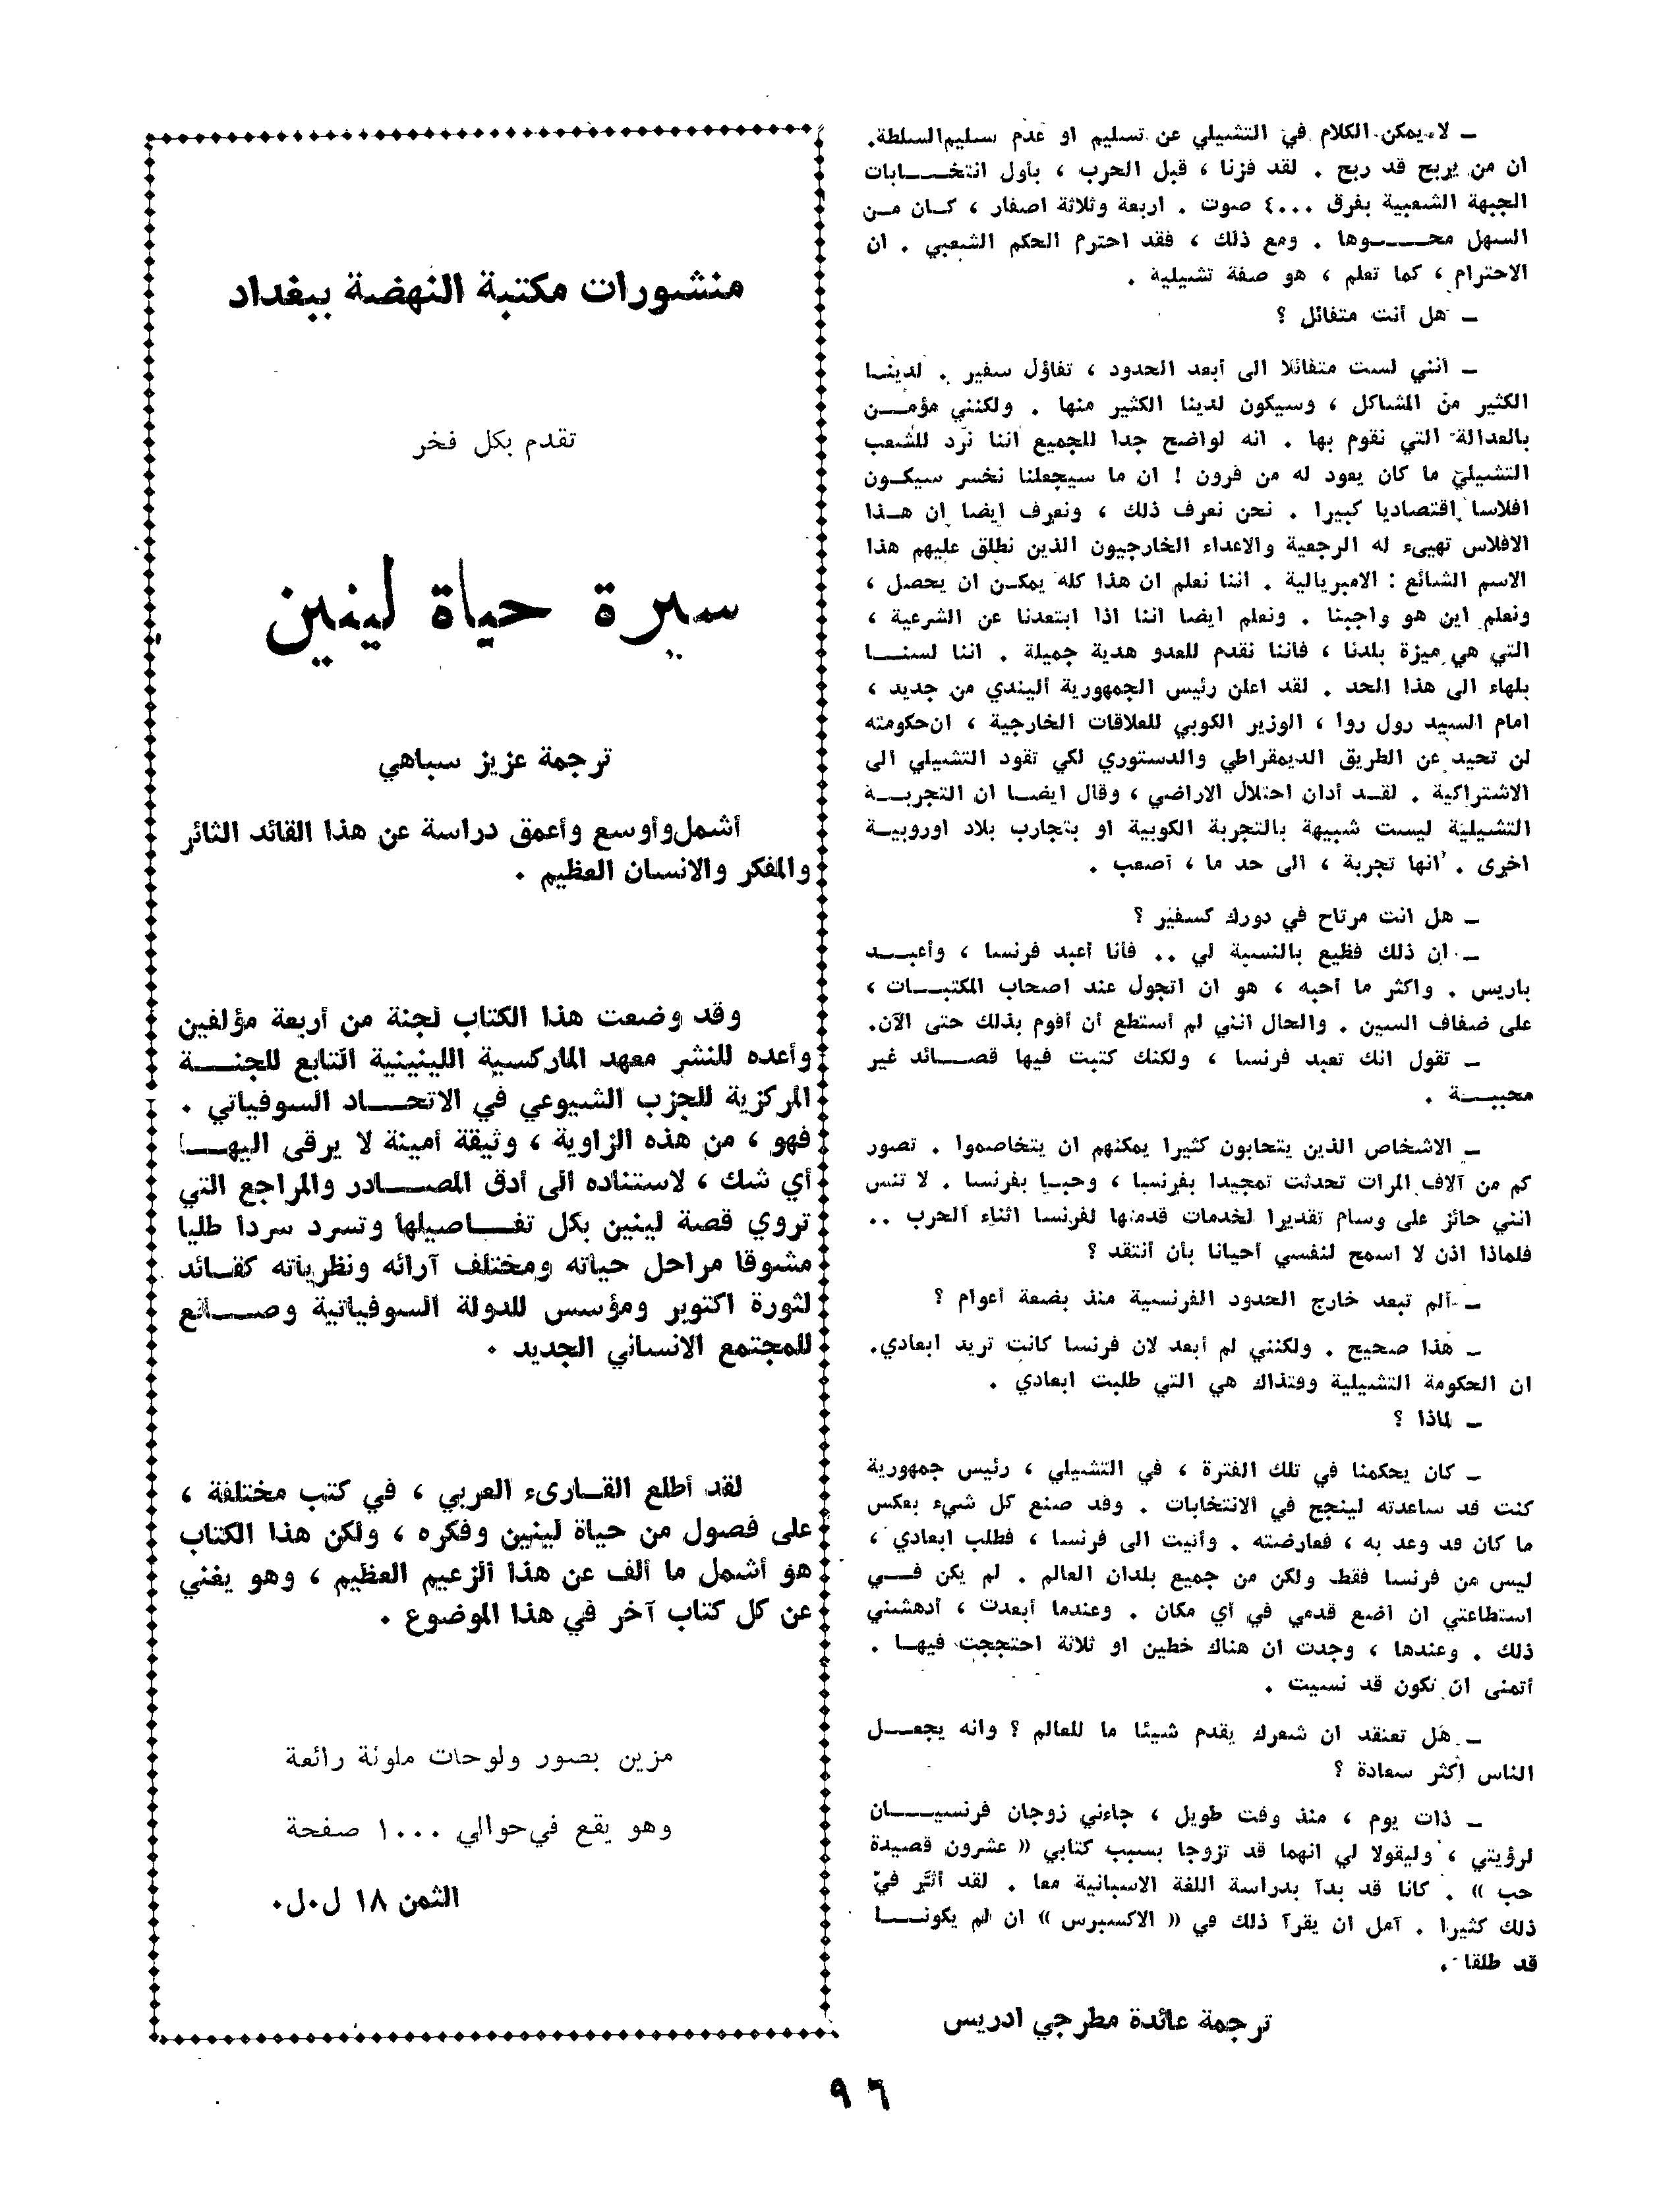 ـ لا يمكن الكلام في التشيلي عن تسليم او عدم تسليم السلطة.
ان من يربح قد ربح . لقد فزنا ، قبل الحرب ، بأول انتخـــابات
الجبهة الشعبية بفرق ٤٠٠٠ صوت . اربعة وثلاثة اصفار ، كـان مـن
السهل محـــوها . ومع ذلك ، فقد احترم الحكم الشعبي . ان
الاحترام ، كما تعلم ، هو صفة تشيلية .
ـ هل أنت متفائل ؟
ـ أنني لست متفائلا الى أبعد الحدود ، تفاؤل سفير . لدينـا
الكثير من المشاكل ، وسيكون لدينا الكثير منها . ولكنني مؤمـن
بالعدالة التي نقوم بها . انه لواضح جدا للجميع اننا نرد للشعب
التشيلي ما كان يعود له من قرون ! ان ما سيجعلنا نخسر سيكـون
افلاسا اقتصاديا كبيرا . نحن نعرف ذلك ، ونعرف ايضا ان هـذا
الافلاس تهيىء له الرجعية والاعداء الخارجيون الذين نطلق عليهم هذا
الاسم الشائع : الامبريالية . اننا نعلم ان هذا كله يمكـن ان يحصل ،
ونعلم اين هو واجبنا . ونعلم ايضا اننا اذا ابتعدنا عن الشرعية ،
التي هي ميزة بلدنا ، فاننا نقدم للعدو هدية جميلة . اننا لسنـا
بلهاء الى هذا الحد . لقد اعلن رئيس الجمهورية أليندي من جديد ،
امام السيد رول روا ، الوزير الكوبي للعلاقات الخارجية ، ان حكومته
لن تحيد عن الطريق الديمقراطي والدستوري لكي تقود التشيلي الى
الاشتراكية . لقـد أدان احتلال الاراضي ، وقال ايضـا ان التجربـة
التشيلية ليست شبيهة بالتجربة الكوبية او بتجارب بلاد اوروبيـة
اخرى . انها تجربة ، الى حد ما ، أصعب .
ـ هل انت مرتاح في دورك كسفير ؟
ـ ان ذلك فظيع بالنسبة لي .. فأنا أعبد فرنسا ، وأعبـد
باريس . واكثر ما أحبه ، هو ان اتجول عند اصحاب المكتبـات ،
على ضفاف السين . والحال انني لم أستطع أن أقوم بذلك حتى الآن.
ـ تقول انك تعبد فرنسا ، ولكنك كتبت فيها قصـائد غير
محببـة .
ـ الاشخاص الذين يتحابون كثيرا يمكنهم ان يتخاصموا . تصور
كم من آلاف المرات تحدثت تمجيدا بفرنسا ، وحبـا بفرنسا . لا تنس
انني حائز على وسام تقديرا لخدمات قدمتها لفرنسا اثناء الحرب ..
فلماذا اذن لا اسمح لنفسي أحيانا بأن أنتقد ؟
ـ ألم تبعد خارج الحدود الفرنسية منذ بضعة أعوام ؟
ـ هذا صحيح . ولكنني لم أبعد لان فرنسا كانت تريد ابعادي.
ان الحكومة التشيلية وقتذاك هي التي طلبت ابعادي .
ـ لماذا ؟
ـ كان يحكمنا في تلك الفترة ، في التشيلي ، رئيس جمهورية
كنت قد ساعدته لينجح في الانتخابات . وقد صنع كل شيء بعكس
ما كان قد وعد به ، فعارضته . وأتيت الى فرنسا ، فطلب ابعادي ،
ليس من فرنسا فقط ولكن من جميع بلدان العالم . لم يكن فـي
استطاعتي ان أضع قدمي في أي مكان . وعندما أبعدت ، أدهشني
ذلك . وعندها ، وجدت ان هناك خطين او ثلاثة احتججت فيهـا .
أتمنى ان تكون قد نسيت .
ـ هل تعتقد ان شعرك يقدم شيئا ما للعالم ؟ وانه يجعـل
الناس أكثر سعادة ؟
ـ ذات يوم ، منذ وقت طويل ، جاءني زوجان فرنسيـان
لرؤيتي ، وليقولا لي انهما قد تزوجا بسبب كتابي « عشرون قصيدة
حب » . كانا قد بدآ بدراسة اللغة الاسبانية معا . لقد أثّر فيّ
ذلك كثيرا . آمل ان يقرآ ذلك في « الاكسبرس » ان لم يكونـا
قد طلقا .
ترجمة عائدة مطرجي ادريس
منشورات مكتبة النهضة ببغداد
تقدم بكل فخر
سيرة حياة لينين
ترجمة عزيز سباهي
أشمل وأوسع وأعمق دراسة عن هذا القائد الثائر
والمفكر والانسان العظيم .
وقد وضعت هذا الكتاب لجنة من أربعة مؤلفين
وأعده للنشر معهد الماركسية اللينينية التابع للجنـة
المركزية للحزب الشيوعي في الاتحـاد السوفياتي .
فهو ، من هذه الزاوية ، وثيقة أمينة لا يرقى اليهـا
أي شك ، لاستناده الى أدق المصـادر والمراجع التي
تروي قصة لينين بكل تفـاصيلها وتسرد سردا طليا
مشوقا مراحل حياته ومختلف آرائه ونظرياته كقـائد
لثورة اكتوبر ومؤسس للدولة السوفياتية وصـانع
للمجتمع الانساني الجديد .
لقد أطلع القـارىء العربي ، في كتب مختلفة ،
على فصول من حياة لينين وفكره ، ولكن هذا الكتاب
هو أشمل ما ألف عن هذا الزعيم العظيم ، وهو يغني
عن كل كتاب آخر في هذا الموضوع .
مزين بصور ولوحات ملونة رائعة
وهو يقع في حوالي ١٠٠٠ صفحة
الثمن ١٨ ل.ل.
٩٦